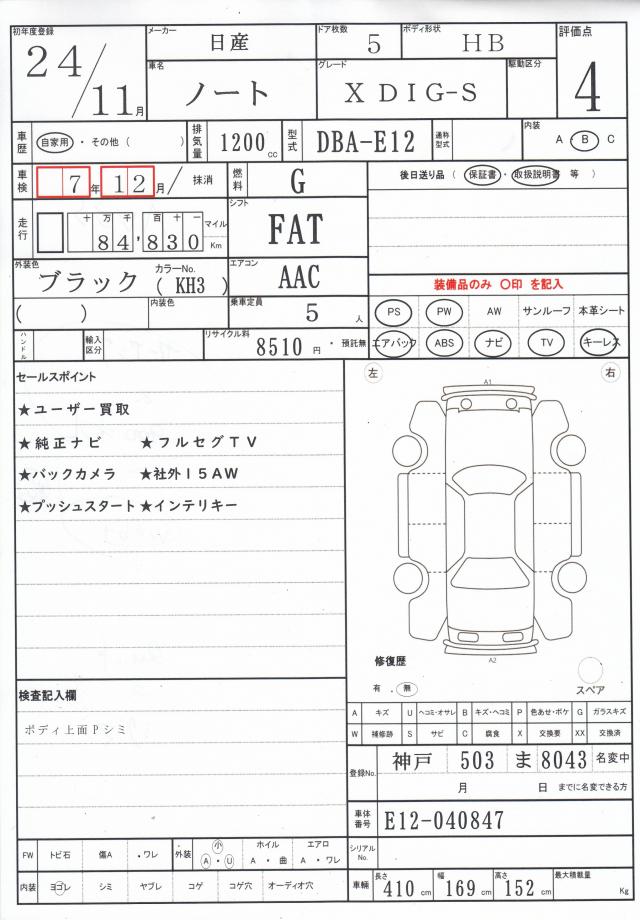 初年度登録 メーカー 日産 ドア枚数 5 ボディ形状 HB 評価点
24/11月 車名 ノート グレード X DIG-S 駆動区分 4
車歴 自家用 ・ その他 ( ) 排気量 1200cc 型式 DBA-E12 通称型式 内装 A ・ B C
車検 7年 12月 / 抹消 燃料 G 後日送り品 ( 保証書 ・ 取扱説明書 等 )
走行 十 万 千 百 十 一 84,830 マイル Km シフト FAT
外装色 ブラック カラーNo. ( KH3 ) エアコン AAC 装備品のみ 〇印 を記入
( ) 内装色 乗車定員 5人 PS PW AW サンルーフ 本革シート
ハンドル 輸入区分 リサイクル料 8510円 ・ 預託無 エアバック ABS ナビ TV キーレス
セールスポイント 左 右
★ユーザー買取 A1
★純正ナビ ★フルセグTV
★バックカメラ ★社外15AW
★プッシュスタート ★インテリキー
A2
修復歴
有 ・ 無 スペア
検査記入欄
ボディ上面Pシミ
A キズ U ヘコミ・オサレ B キズ・ヘコミ P 色あせ・ボケ G ガラスキズ
W 補修跡 S サビ C 腐食 X 交換要 XX 交換済
登録No. 神戸 503 ま 8043 名変中
月 日 までに名変できる方
車体番号 E12-040847
FW トビ石 傷A ・ワレ 外装 小 A ・ U ホイル A ・ 曲 エアロ A ・ ワレ シリアルNo.
内装 ヨゴレ シミ ヤブレ コゲ コゲ穴 オーディオ穴 車輛 長さ 410cm 幅 169cm 高さ 152cm 最大積載量 Kg